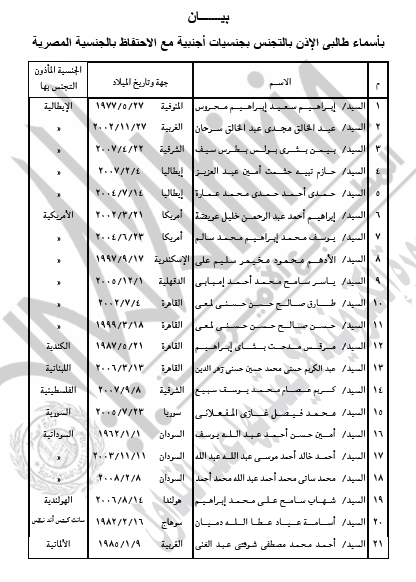 بيـــــان
بأسماء طالبى الإذن بالتجنس بجنسيات أجنبية مع الاحتفاظ بالجنسية المصرية
م الاســـم جهة وتاريخ الميلاد الجنسية المأذون التجنس بها
١ السيد/ إبراهيم سعيد إبراهيم محروس المنوفية ١٩٧٧/٥/٢٧ الإيطالية
٢ السيد/ عبد الخالق مجدى عبد الخالق سرحان الغربية ٢٠٠٢/١١/٢٧ »
٣ السيد/ بيمن بشرى بولس بطرس سيف الشرقية ٢٠٠٧/٤/٢٢ »
٤ السيد/ حازم نبيه حشمت أمين عبد العزيز إيطاليا ٢٠٠٧/٢/٤ »
٥ السيد/ حمدى أحمد حمدى محمد عمارة إيطاليا ٢٠٠٤/٧/١٤ »
٦ السيد/ إبراهيم أحمد عبد الرحمن خليل عريضة أمريكا ٢٠٠٢/٣/٢١ الأمريكية
٧ السيد/ يوسف محمد إبراهيم محمد سالم أمريكا ٢٠٠٤/٦/٢٣ »
٨ السيد/ الأدهم محمود مخيمر سليم على الإسكندرية ١٩٩٧/٩/١٧ »
٩ السيد/ ياسر سامح محمد أحمد إمبابى الدقهلية ٢٠٠٥/١٢/١ »
١٠ السيد/ طارق صالح حسن حسنى لمعى القاهرة ٢٠٠٢/٧/٤ »
١١ السيد/ حسن صالح حسن حسنى لمعى القاهرة ١٩٩٩/٣/١٨ »
١٢ السيد/ مرقس مدحت بشاى إبراهيم القاهرة ١٩٨٧/٥/٢١ الكندية
١٣ السيد/ عبد الكريم حسنى محمد حسين حسنى زهر الدين القاهرة ٢٠٠٦/٣/١٣ اللبنانية
١٤ السيد/ كريم عصام محمد يوسف سبيع الشرقية ٢٠٠٧/٩/٨ الفلسطينية
١٥ السيد/ محمد فيصل غازى المفعلانى سوريا ٢٠٠٥/٧/٢٣ السورية
١٦ السيد/ أمين حسن أحمد عبد الله يوسف السودان ١٩٦٢/١/١ السودانية
١٧ السيد/ أحمد خالد أحمد موسى عبد الله عبد الله السودان ٢٠٠٣/١١/١١ »
١٨ السيد/ محمد ساتى محمد أحمد عبد الله محمد أحمد السودان ٢٠٠٨/٢/٨ »
١٩ السيد/ شهاب سامح على محمد إبراهيم هولندا ٢٠٠٦/٨/١٤ الهولندية
٢٠ السيد/ أسامة عياد عطا الله دميان سوهاج ١٩٨٢/٢/١٦ سانت كيتس أند نيفس
٢١ السيد/ أحمد محمد مصطفى شوقى عبد الغنى الغربية ١٩٨٥/١/٩ الألمانية